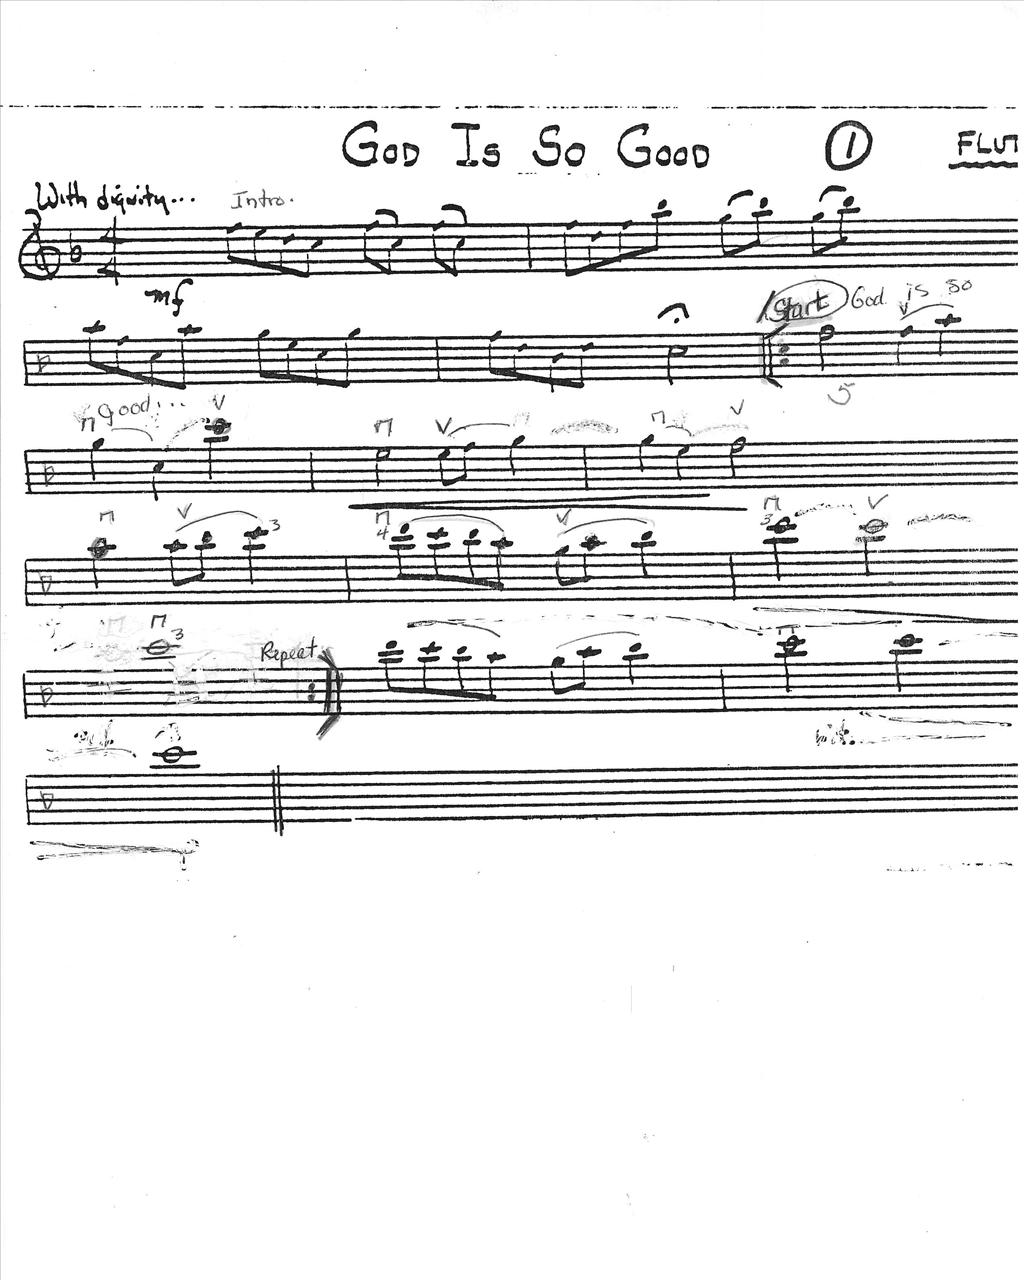 God Is So Good 1 FLUT
With dignity... Intro.
mf
Start God is so
5
Good...
3
4 3
3 Repeat